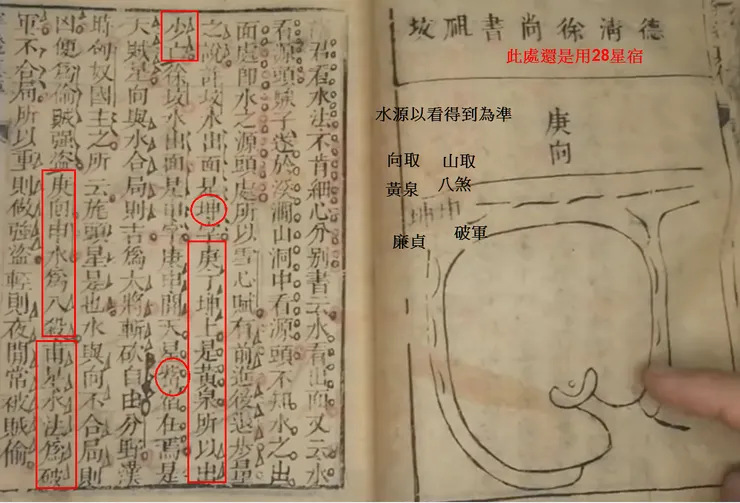 德清徐尚書祖坟
此處還是用28星宿
水源以看得到為準
庚向
向取
山取
黃泉
八煞
廉貞
破軍
坤申
君看水法不肯細心分別書云水看出面又云水
看源頭矮子遂於溪澗山洞中看源頭不知水之出
面處即水之源頭處所以雪心賦有前進後退步量
之說許坟水出面是坤字庚丁坤上是黃泉所以出
少白徐坟水出面是申字庚申間天星觜宿在焉是
大賊星向與水合局則吉為大將斬砍自由分野漢
時匈奴國主之所云旄頭星是也水與向不合局則
凶便為偷賊强盗庚向申水為八殺甫星水法為破
軍不合局所以重則做強盜輕則夜間常被賊偷